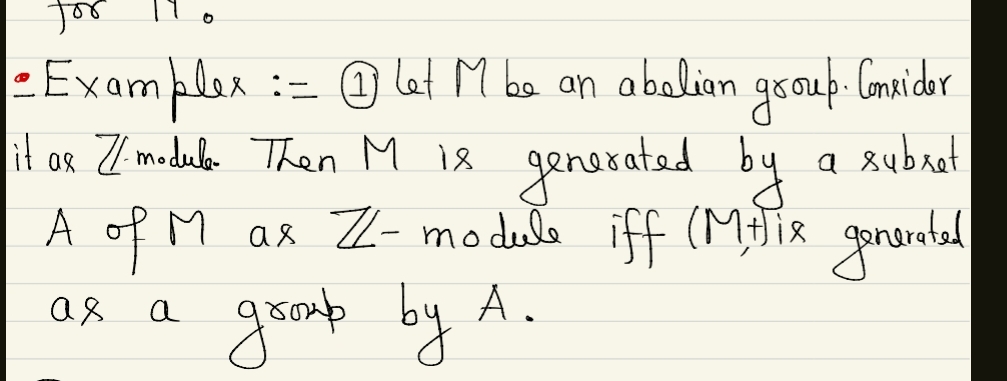 for M.
Examples := ① Let M be an abelian group. Consider
it as ℤ-module. Then M is generated by a subset
A of M as ℤ-module iff (M,+) is generated
as a group by A.